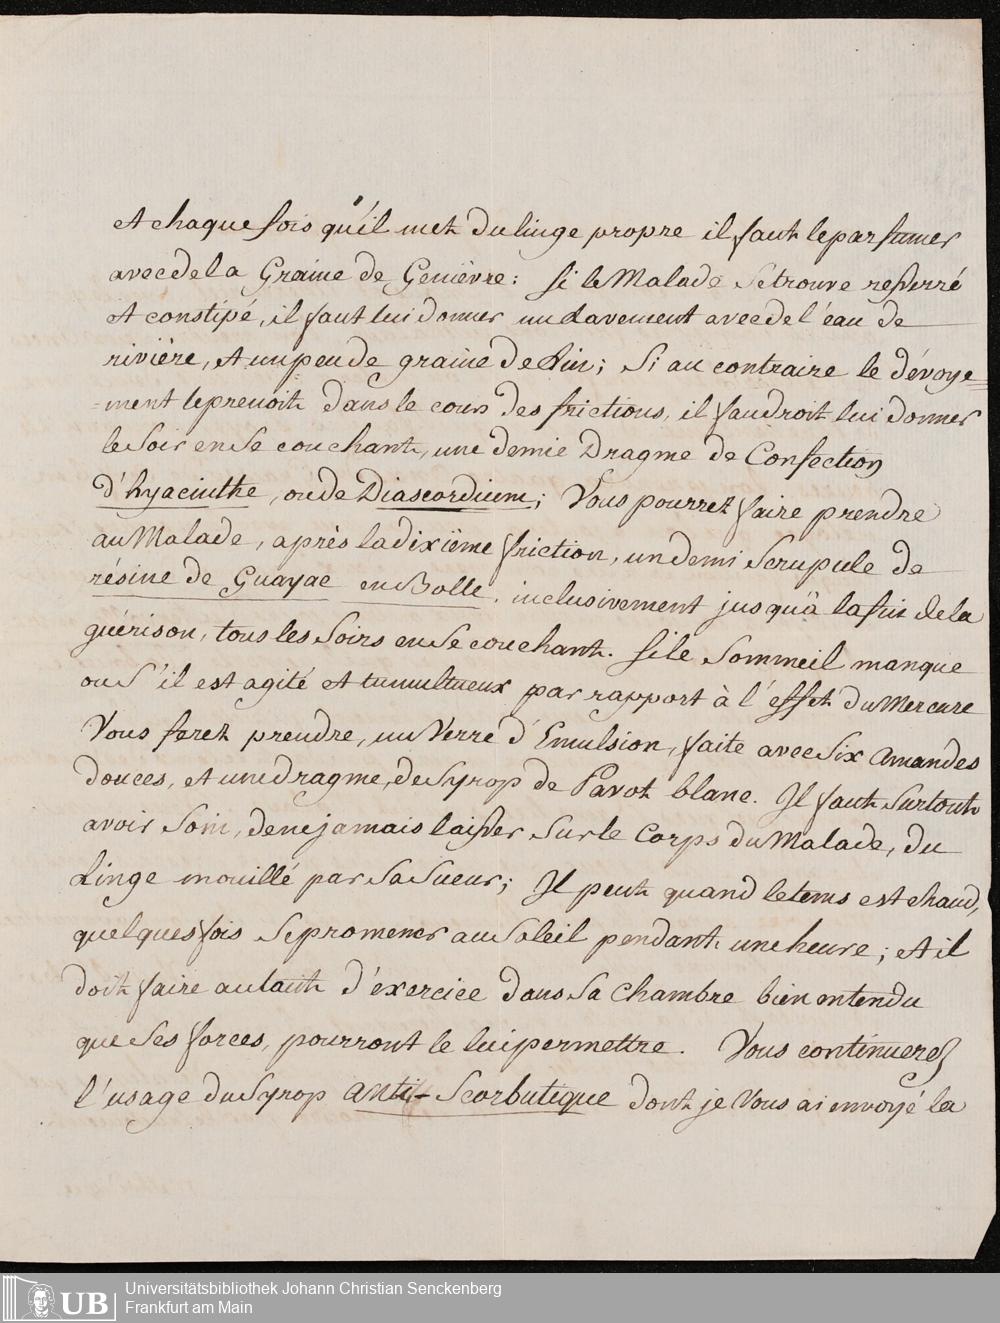 et chaque fois qu'il met du linge propre il faut le parfumer
avec de la Graine de Genièvre: si le Malade se trouve resserré
et constipé, il faut lui donner un Lavement avec de l'éau de
rivière, et un peu de graine de Lin; Si au contraire le dévoye=
=ment le prenoit dans le cours des frictions, il faudroit lui donner
le soir en se couchant, une demie Dragme de Confection
d'hyacinthe, ou de Diascordium; Vous pourrez faire prendre
au Malade, après la dixième friction, un demi Scrupule de
résine de Guayac en Bolle, inclusivement jusqu'à la fin de la
guérison, tous les Soirs en se couchant. Si le Sommeil manque
ou s'il est agité et tumultueux par rapport à l'effet du Mercure
Vous ferez prendre, un Verre d'Emulsion, faite avec six Amandes
douces, et une dragme, de Syrop de Pavot blanc. Il faut surtout
avoir Soin, de ne jamais laisser sur le Corps du Malade, du
Linge mouillé par sa Sueur; Il peut quand le tems est chaud,
quelques fois se promener au Soleil pendant une heure; et il
doit faire autant d'éxercice dans sa Chambre bien entendu
que ses forces, pourront le lui permettre. Vous continuerez
l'usage du Syrop Anti-Scorbutique dont je Vous ai envoyé la
UB
Universitätsbibliothek Johann Christian Senckenberg
Frankfurt am Main